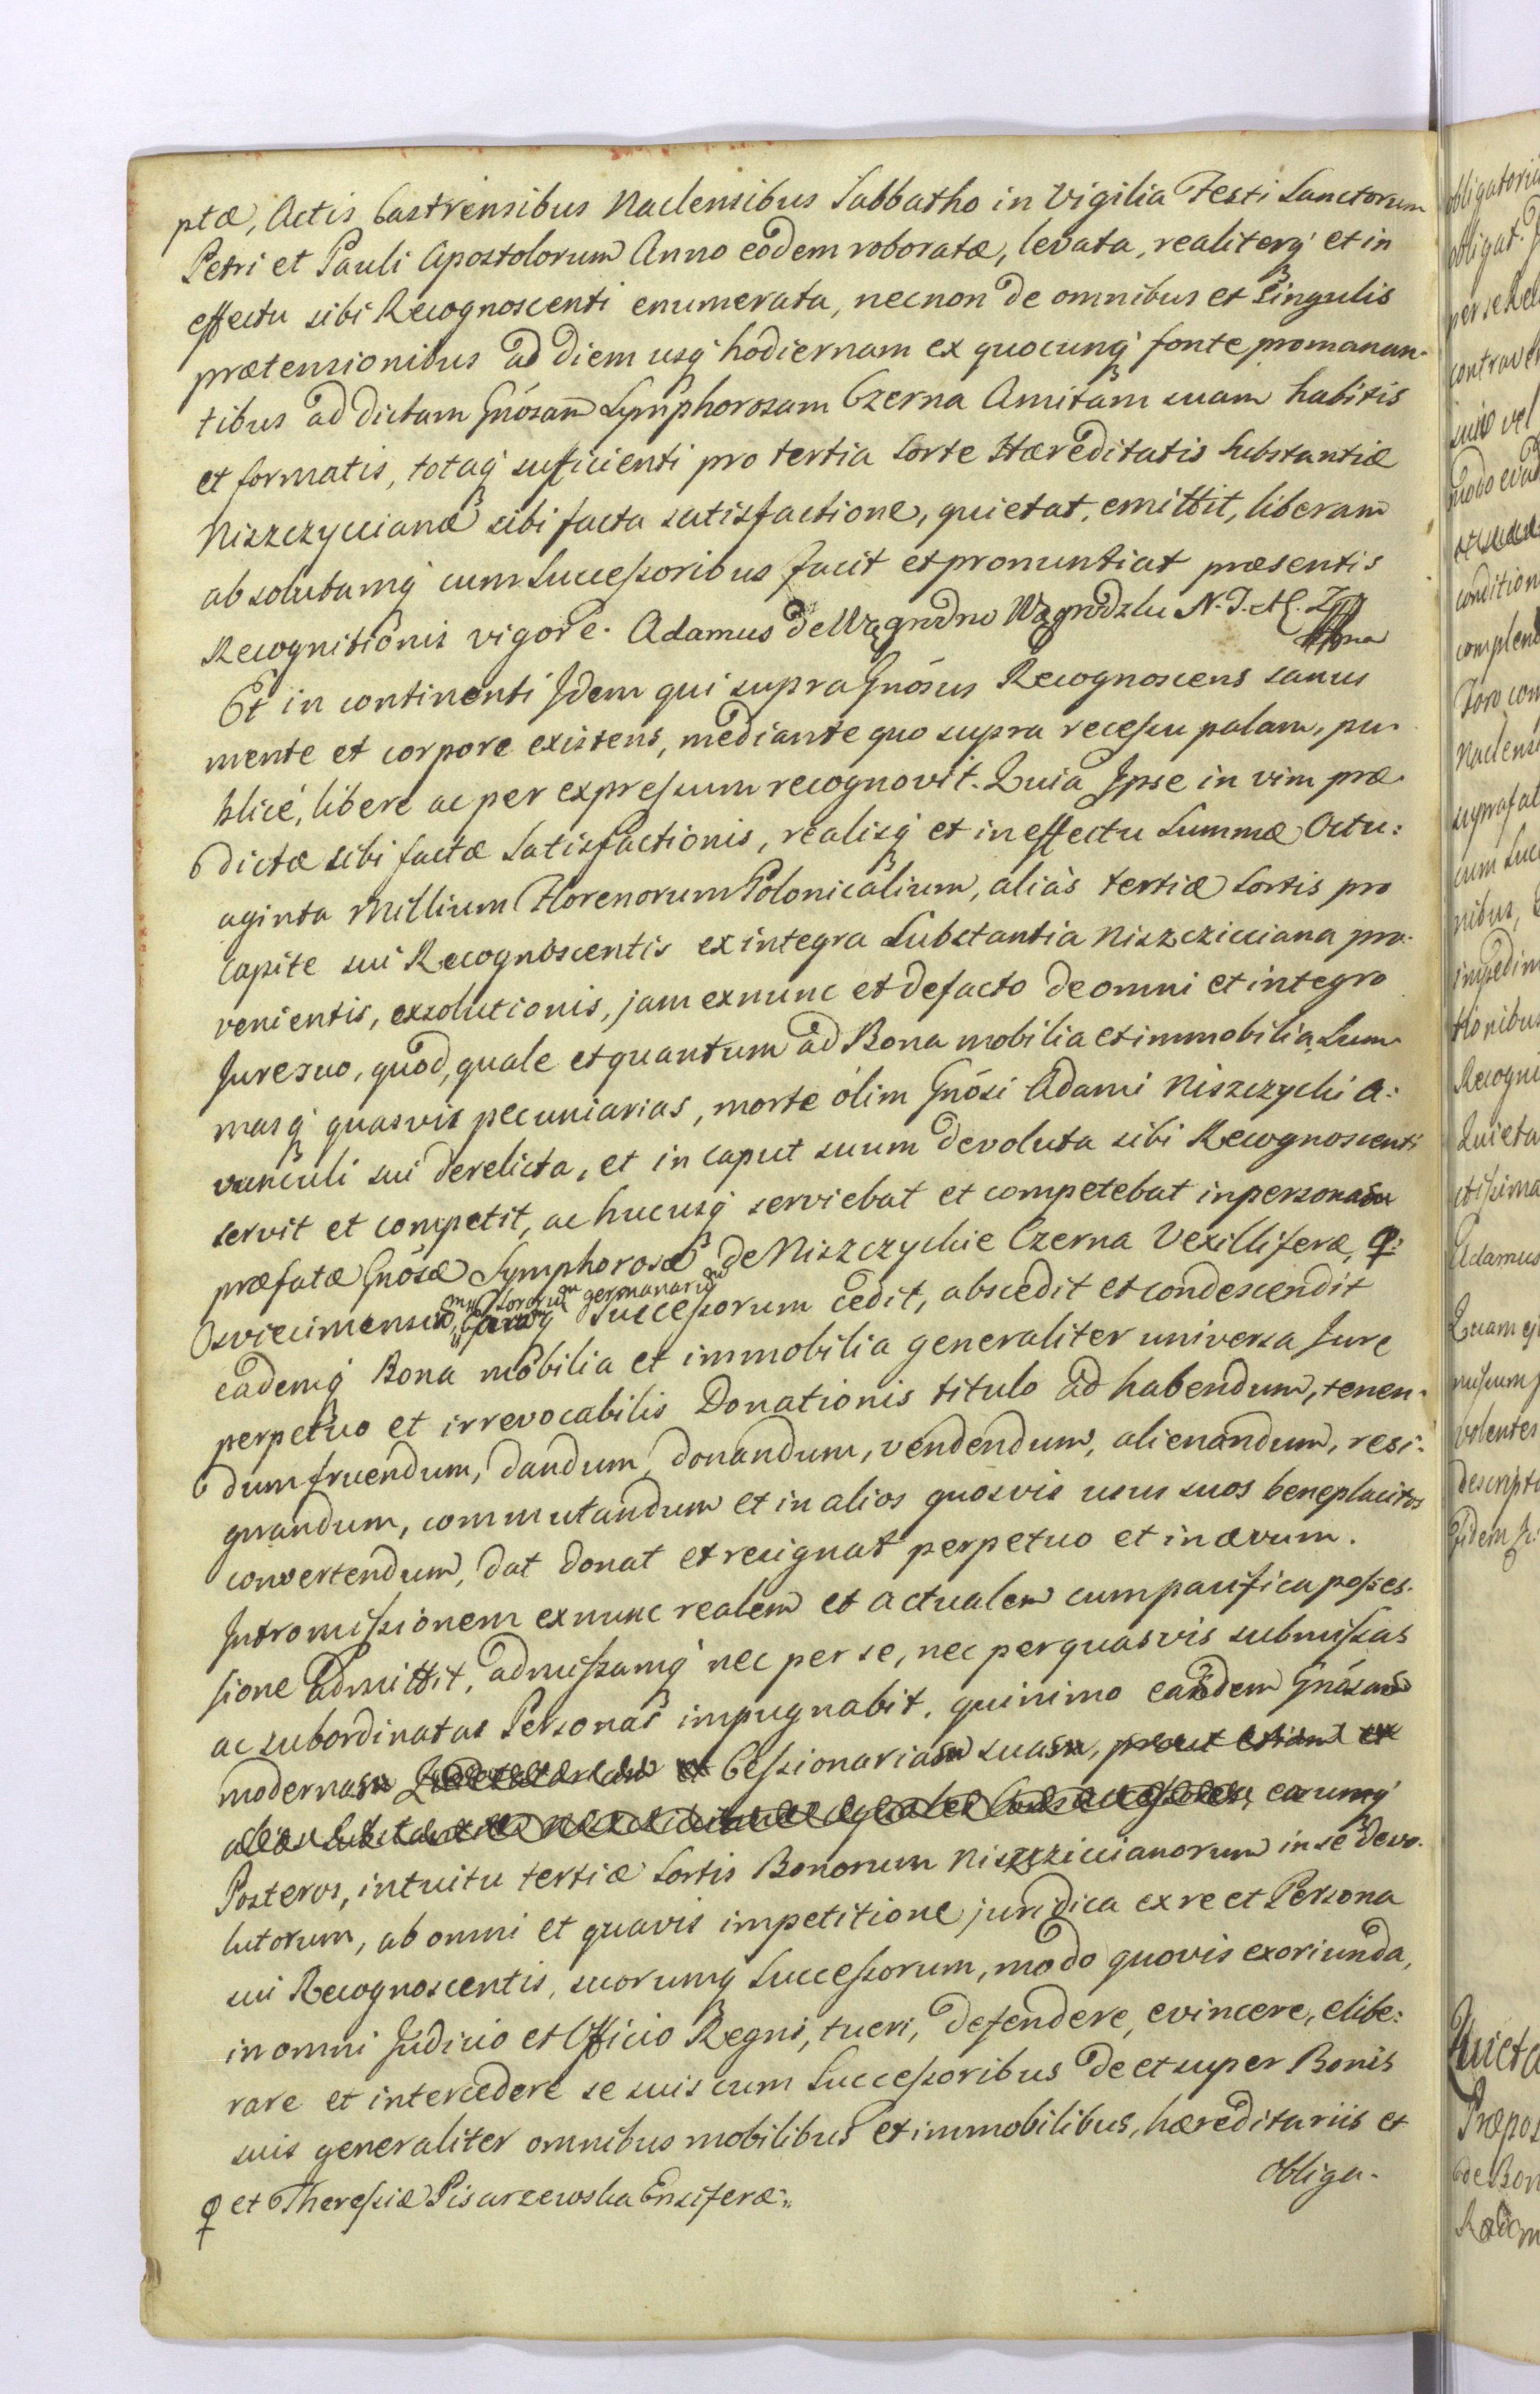 ptæ, Actis Castrensibus Naclensibus Sabbatho in Vigilia Festi Sanctorum
Petri et Pauli Apostolorum Anno eodem roboratæ, levata, realiterq́ et in
effectu sibi Recognoscenti enumerata, necnon de omnibus et Singulis
prætensionibus ad diem usq́ hodiernam ex quocunq́ fonte promanan-
tibus ad dictam Gnósam Symphorosam Czerna Amitam suam habitis
et formatis, totaq́ sufficienti pro tertia Sorte Hæreditatis Substantiæ
Niszczyccianæ sibi facta satisfactione, quietat, emittit, liberam
absolutamq́ cum Successoribus facit et pronuntiat præsentis
Recognitionis vigore. Adamus de Wągrodno Wągrodzki N. T. M.
Et in continenti Idem qui supra Gnósus Recognoscens sanus
mente et corpore existens, mediante quo supra recessu palam, pu-
blicé, libere ac per expressum recognovit. Quia Ipse in vim præ-
dictæ sibi factæ Satisfactionis, realisq́ et in effectu Summæ Octu:
aginta Millium Florenorum Polonicalium, aliàs tertiæ Sortis pro
Capite sui Recognoscentis ex integra Substantia Niszczicciana pro-
venientis, exsolutionis, jam exnunc et defacto de omni et integro
Jure suo, quod, quale et quantum ad Bona mobilia et immobilia, Sum-
masq́ quasvis pecuniarias, morte olim Gnósi Adami Niszczycki A:
vunculi sui derelicta, et in caput suum devoluta sibi Recognoscenti
servit et competit, ac hucusq́ serviebat et competebat in personam
præfatæ Gnósæ Symphorosæ de Niszczyckie Czerna Vexilliferæ, ♀:
Sororum germanarum
Osviecimensium, earumq́ Successorum cedit, abscedit et condescendit
eademq́ Bona mobilia et immobilia generaliter universa Jure
perpetuo et irrevocabilis Donationis titulo ad habendum, tenen-
dum fruendum, dandum, donandum, vendendum, alienandum, resi:
gnandum, commutandum et in alios quosvis usus suos beneplacitos
convertendum, dat donat et resignat perpetuo et in ævum.
Intromissionem exnunc realem et actualem cum pacifica posses-
sione admittit, admissamq́ nec per se, nec per quasvis submissas
ac subordinatas Personas impugnabit, quinimo easdem Gnósas
modernas Cessionarias suas, prout etiam ex
earumq́
Posteros, intuitu tertiæ Sortis Bonorum Niszcziccianorum in se devo-
lutorum, ab omni et quavis impetitione juridica ex re et Persona
sui Recognoscentis, suorumq́ Successorum, modo quovis exoriunda,
in omni Judicio et Officio Regni, tueri, defendere, evincere, elibe:
rare et intercedere se suis cum Successoribus de et super Bonis
suis generaliter omnibus mobilibus et immobilibus, hæreditariis et
obliga-
♀ et Theresiæ Pisarzewska Ensiferæ: